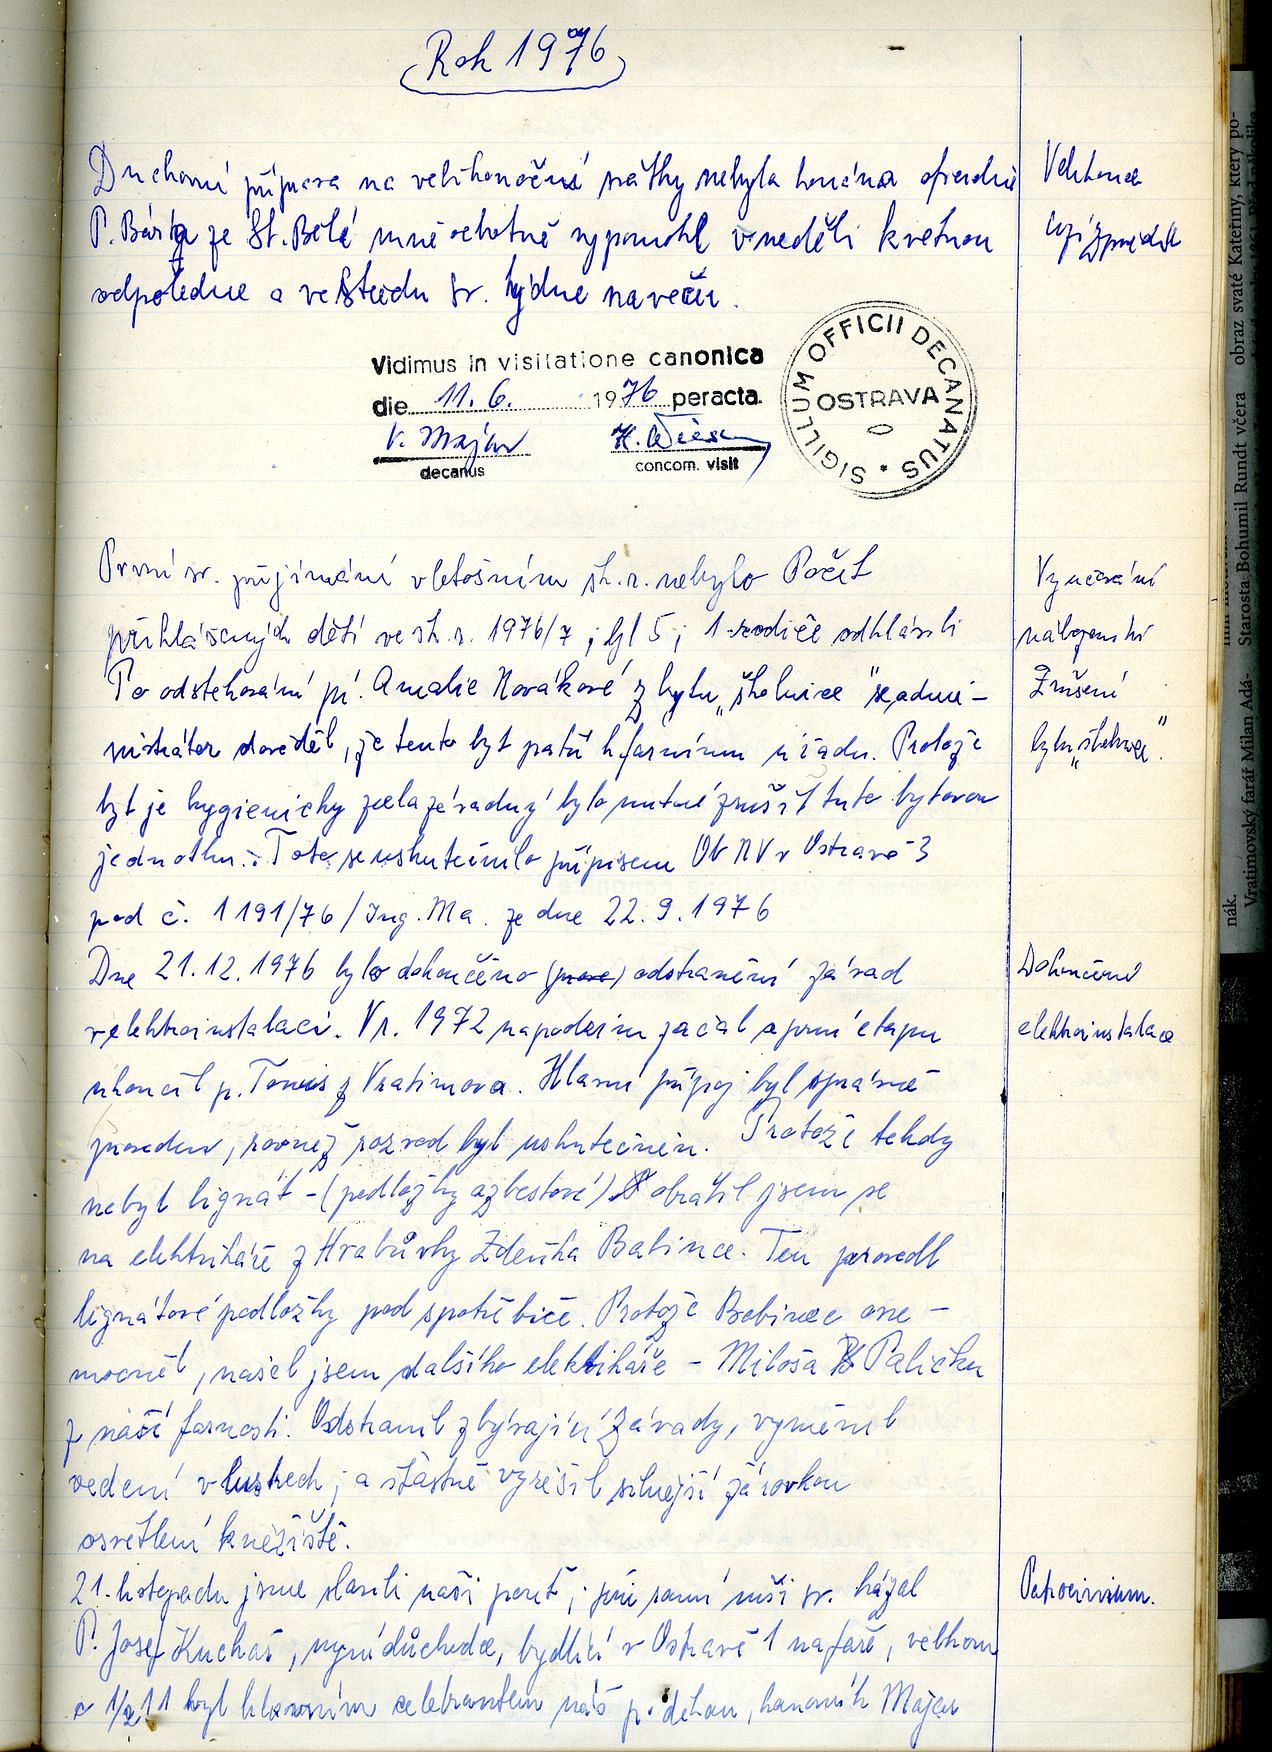 Rok 1976
Duchovní příprava na velikonoční svátky nebyla konána
P. Bárta ze St. Bělé mně ochotně vypomohl v neděli květnou
odpoledne a ve středu sv. týdne navečer.
Velikonoce
Vidimus in visitatione canonica
die 11. 6. 1976 peracta.
decanus
concom. visit
SIGILLUM OFFICII DECANATUS
OSTRAVA
První sv. přijímání v letošním šk. r. nebylo Počet
přihlášených dětí ve šk. r. 1976/7 byl 5; 1 rodiče odhlásili
Po odstěhování pí. Amalie Novákové z bytu „školnice" se admi-
nistrátor dověděl, že tento byt patří k farnímu úřadu. Protože
byt je hygienicky zcela závadný bylo nutné zrušit tuto bytovou
jednotku. Toto se uskutečnilo přípisem Ob NV v Ostravě 3
pod č. 1191/76/Ing. Ma. ze dne 22. 9. 1976
Vyučování
náboženství
Zrušení
bytu „školnice".
Dne 21. 12. 1976 bylo dokončeno odstranění závad
v elektroinstalaci. V r. 1972 na podzim začal a první etapu
ukončil p. z Vratimova. Hlavní přípoj byl správně
proveden, rovněž rozvod byl uskutečněn. Protože tehdy
nebyl lignát - (podložky azbestové) obrátil jsem se
na elektrikáře z Hrabůvky Zdeňka Babince. Ten provedl
lignátové podložky pod spotřebiče. Protože Babinec one-
mocněl, našel jsem dalšího elektrikáře - Miloša Paličku
z naší farnosti. Odstranil zbývající závady, vyměnil
vedení v lustrech, a šťastně vyřešil silnější žárovkou
osvětlení kněžiště.
Dokončení
elektroinstalace
21. listopadu jsme slavili naši pouť; při ranní mši sv. kázal
P. Josef Kuchař, nyní důchodce, bydlící v Ostravě 1 na faře, velkou
v 1/2 11 byl hlavním celebrantem náš p. děkan, kanovník Majer
Patrocinium.